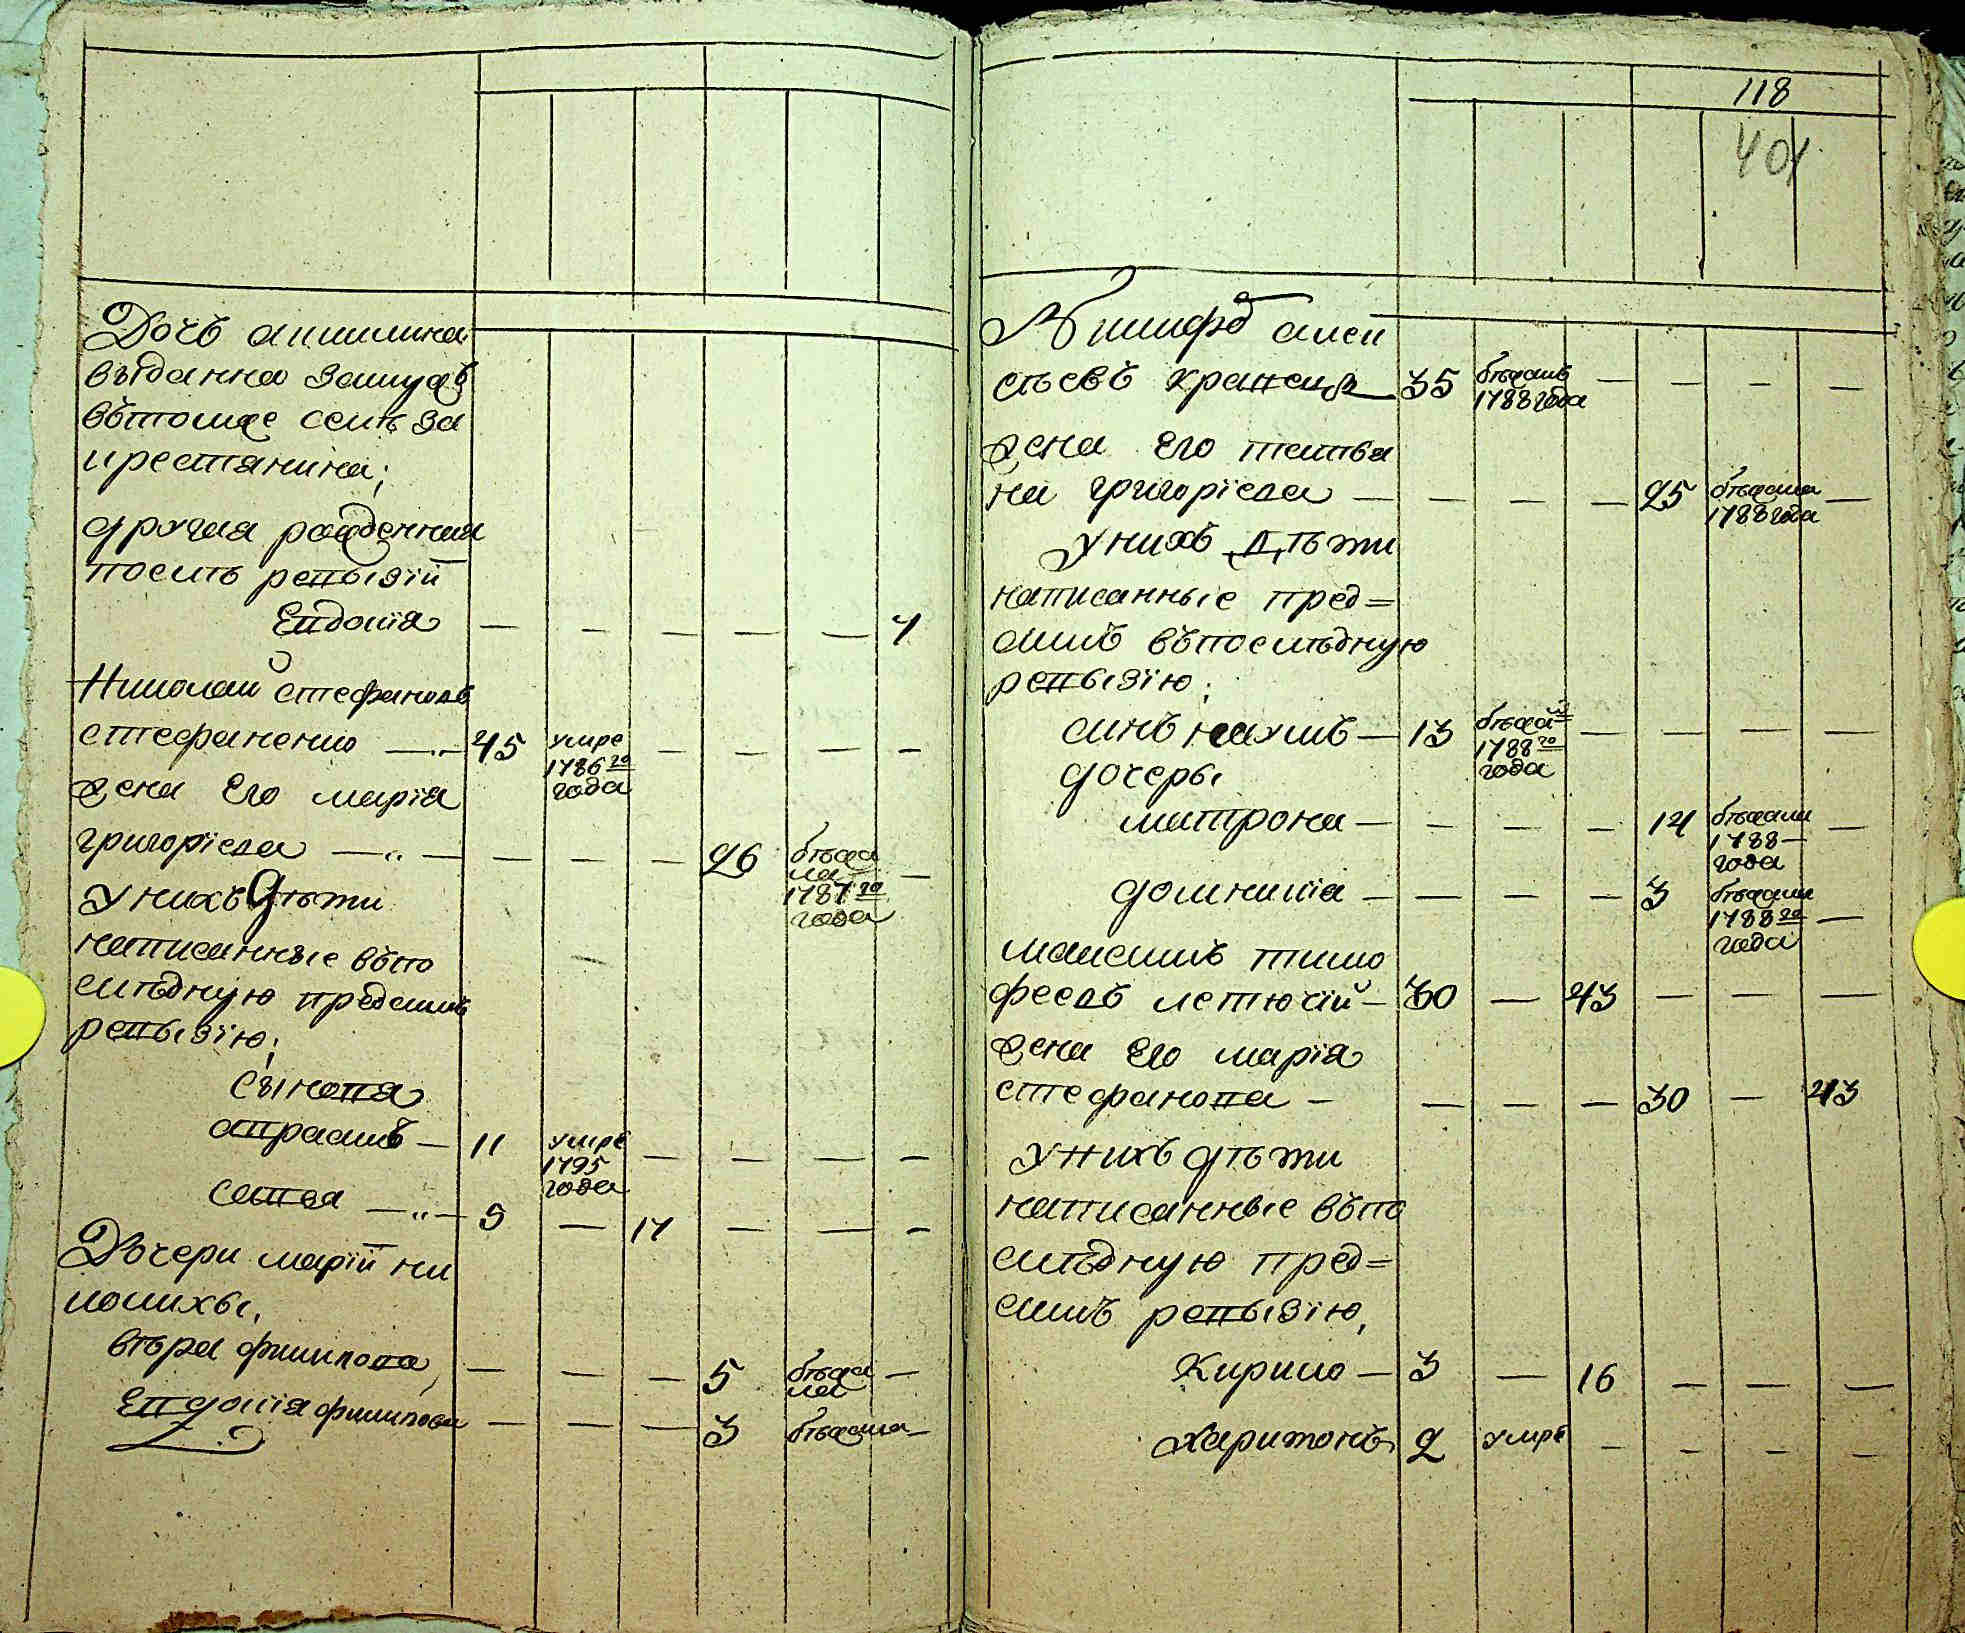 Дочь акилина
выданна замужъ
вътомже селѣ за
крестянина;
другая рожденная
послѣ ревызіи
Евдокія — — — — — 7
Николай стефановъ
стефаненко — 45 умре 1786го года — — — —
жена Его марія
григоріева — — — — 26 бѣжала 1787го года —
унихъ дѣти
написанные въпо
слѣдную предсимъ
ревызію;
Сынова
апрасимъ — 11 умре 1795 года — — — —
савва — 9 — 17 — — —
Дочери маріи ни
колихы,
вѣра филипова, — — — 5 бѣжала —
Евдокія филипова — — — 3 бѣжала —
118
401
Никифоръ алек
сѣевъ кравецъ 35 бѣжалъ 1788 года — — — —
жена Его татья
на григоріева — — — — 25 бѣжала 1788 года —
унихъ дѣти
написанные пред=
симъ въпослѣдную
ревызію;
синъ наумъ — 13 бѣжалъ 1788го года — — — —
дочеры
матрона — — — — 14 бѣжала 1788 года —
домникія — — — — 3 бѣжала 1788го года —
максимъ тимо
феевъ летючій — 30 — 43 — — —
жена Его марія
стефанова — — — — 30 — 43
унихъ дѣти
написанные въпо
слѣдную пред=
симъ ревызію,
Кирило — 3 — 16 — — —
харитонъ 2 умре — — — —